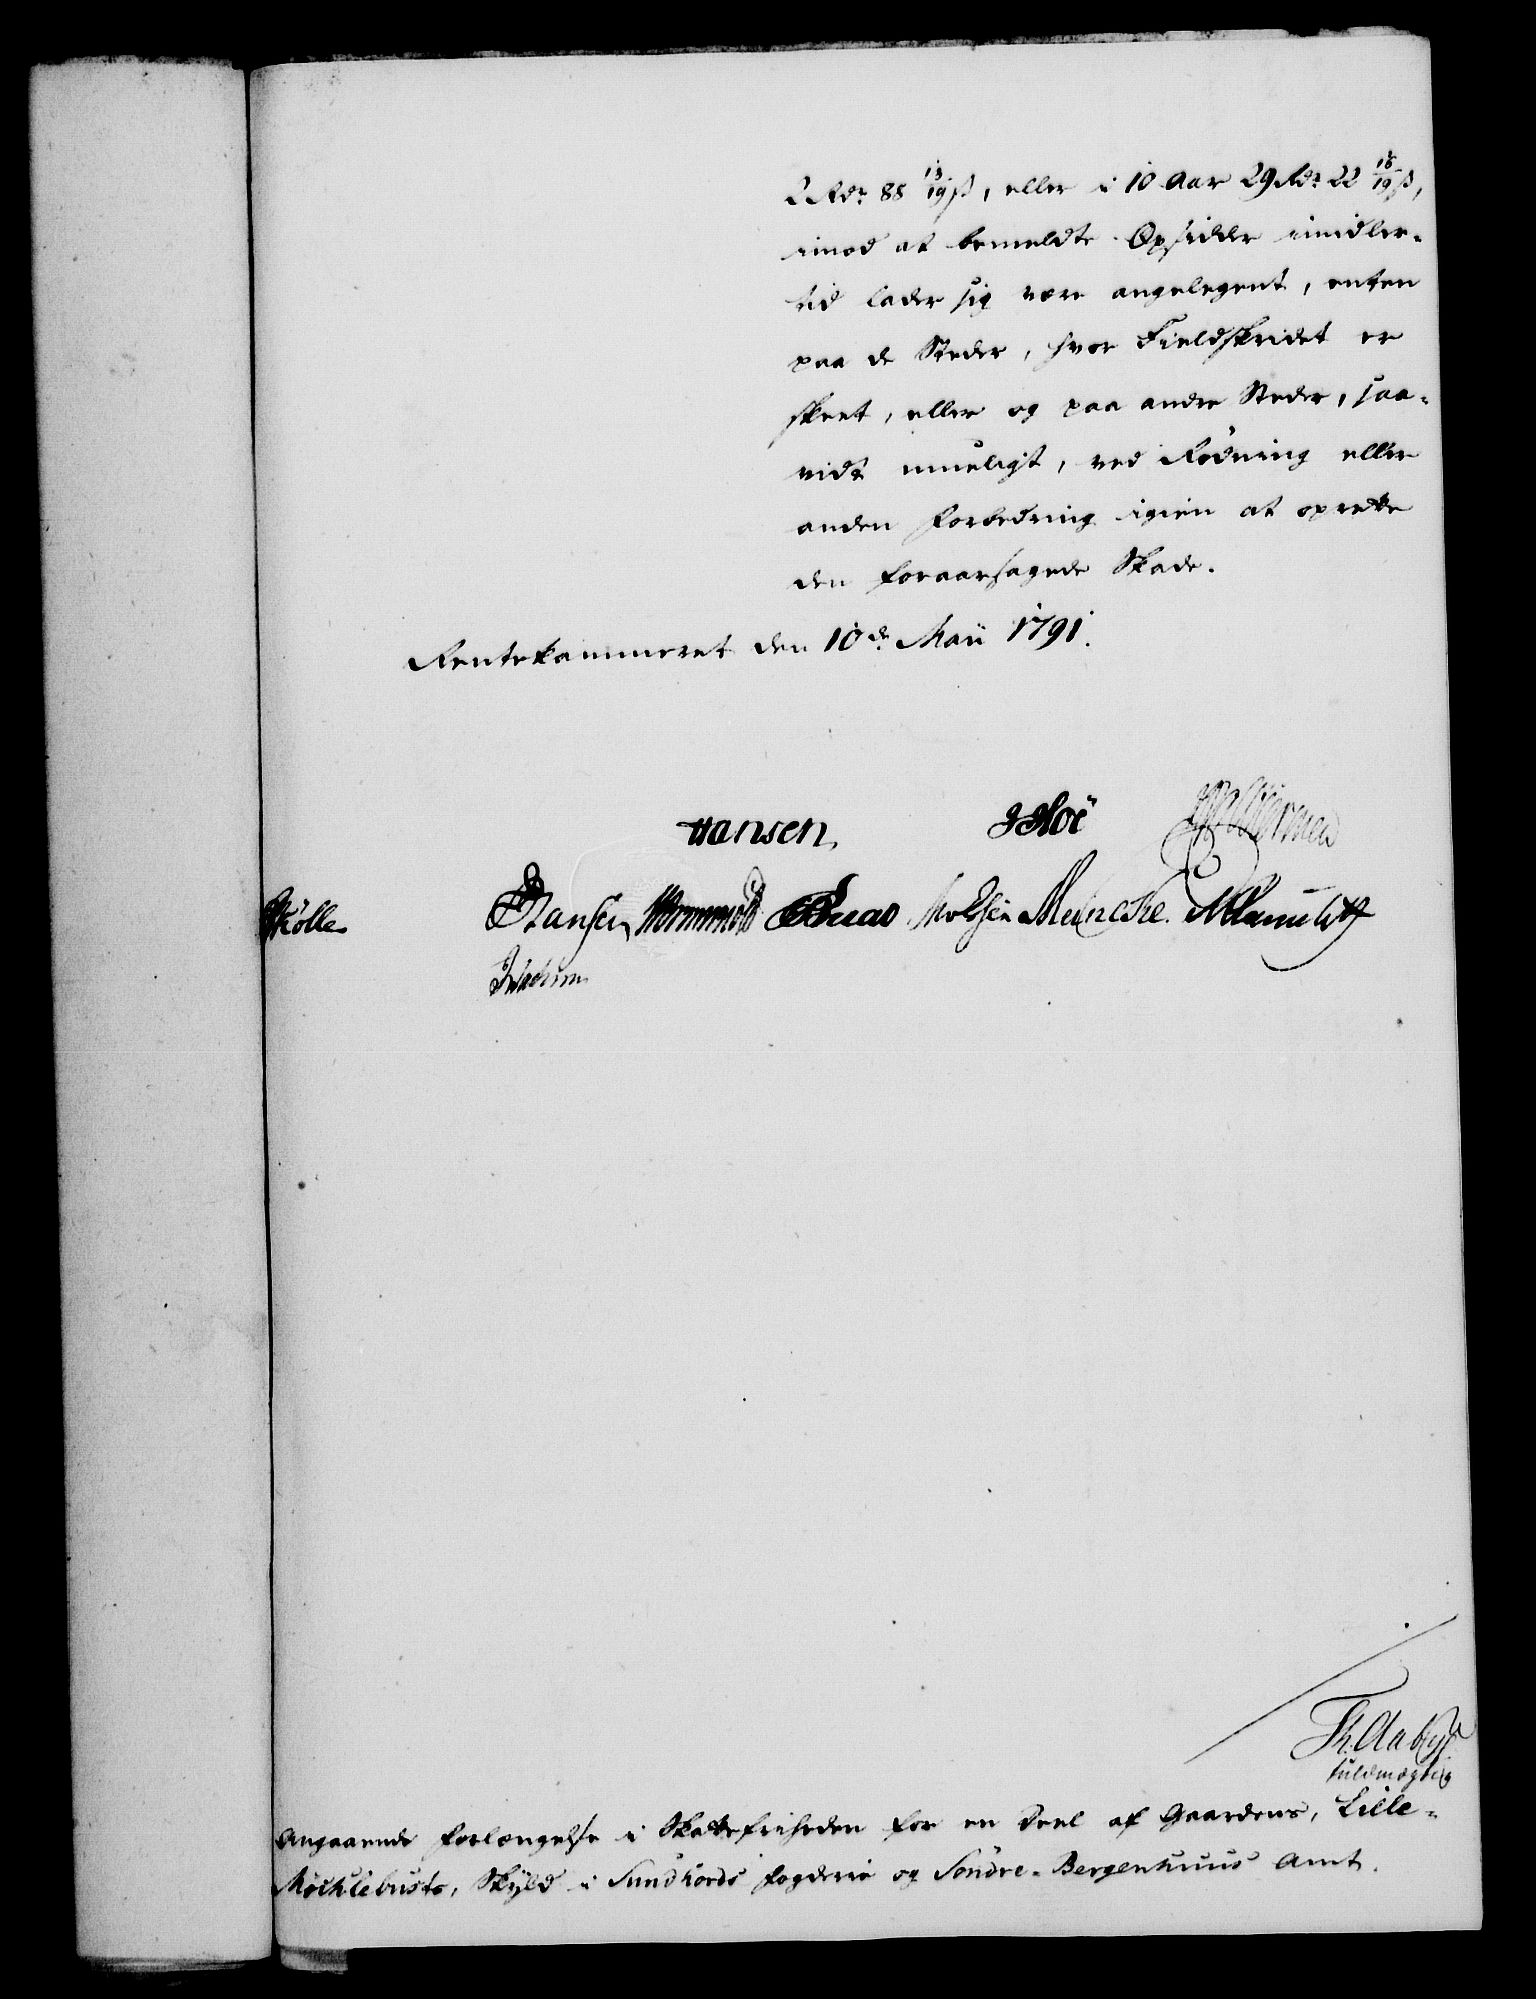 2 Rdr 88 13/19 ß, eller i 10 Aar 29 Rdr 22 16/19 ß,
imod at bemeldte Opsidder imidler-
tid lader sig være angelegent, enten
paa de Steder, hvor Fieldskridet er
skeet, eller og paa andre Steder, saa-
vidt mueligt, ved Rödning eller
anden Forbedring igien at oprette
den foraarsagede Skade.
Rentekammeret den 10de Maii 1791.
Hansen
Hoé
Hansen Wormskiold Muncke
Th. Aabye
fuldmægtig
Angaaende Forlængelse i Skattefriheden for en Deel af Gaardens, Lille-
Möchlebusts, Skyld i Sundhords Fogderie og Söndre-Bergenhuus Amt.